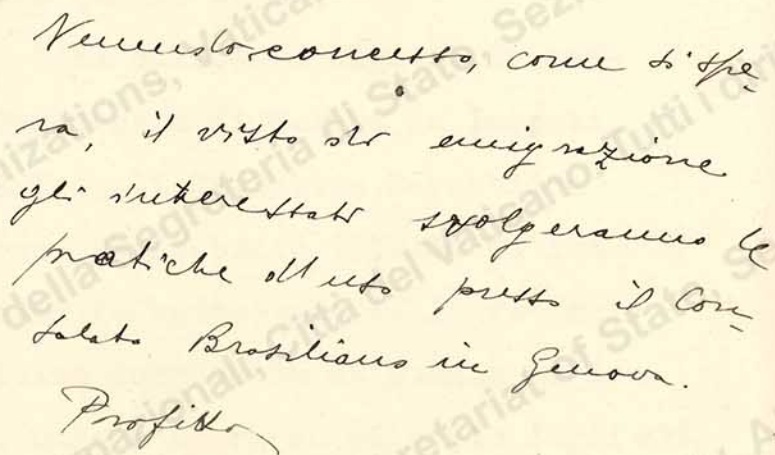 Venendo concesso, come si spe-
ra, il visto di emigrazione
gli interessati svolgeranno le
pratiche d'uso presso il Con-
solato Brasiliano in Genova.
Profitto